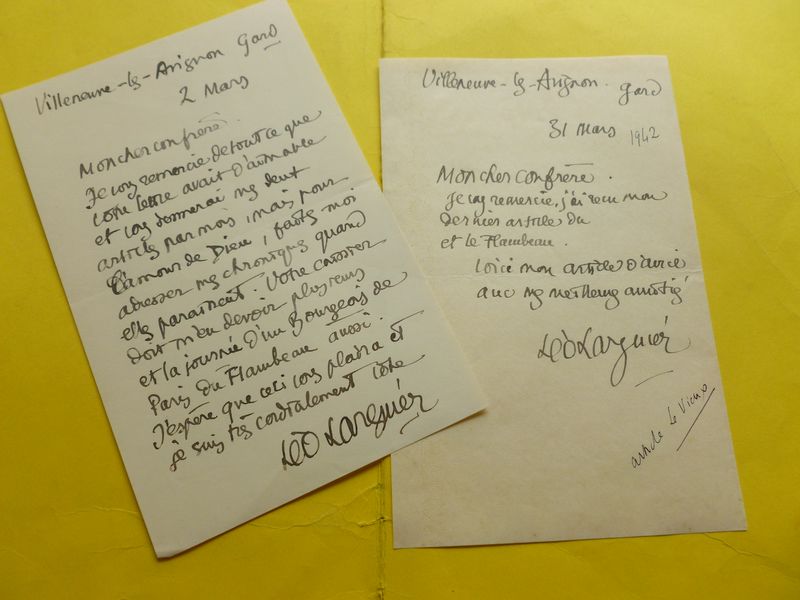 Villeneuve-lès-Avignon Gard
2 Mars
Mon cher confrère.
Je vous remercie de tout ce que
votre lettre avait d'aimable
et vous donnerai mes deux
articles par mois, mais pour
l'amour de Dieu, faites moi
adresser mes chroniques quand
elles paraissent. Votre caissier
doit m'en devoir plusieurs
et la journée d'un Bourgeois de
Paris du Flambeau aussi.
J'espère que ceci vous plaira et
je suis très cordialement vôtre
Léo Larguier
Villeneuve-lès-Avignon. Gard
31 Mars 1942
Mon cher confrère.
Je vous remercie, j'ai reçu mon
dernier article du
et le Flambeau.
Voici mon article d'avril
avec mes meilleures amitiés
Léo Larguier
article Le Vieux